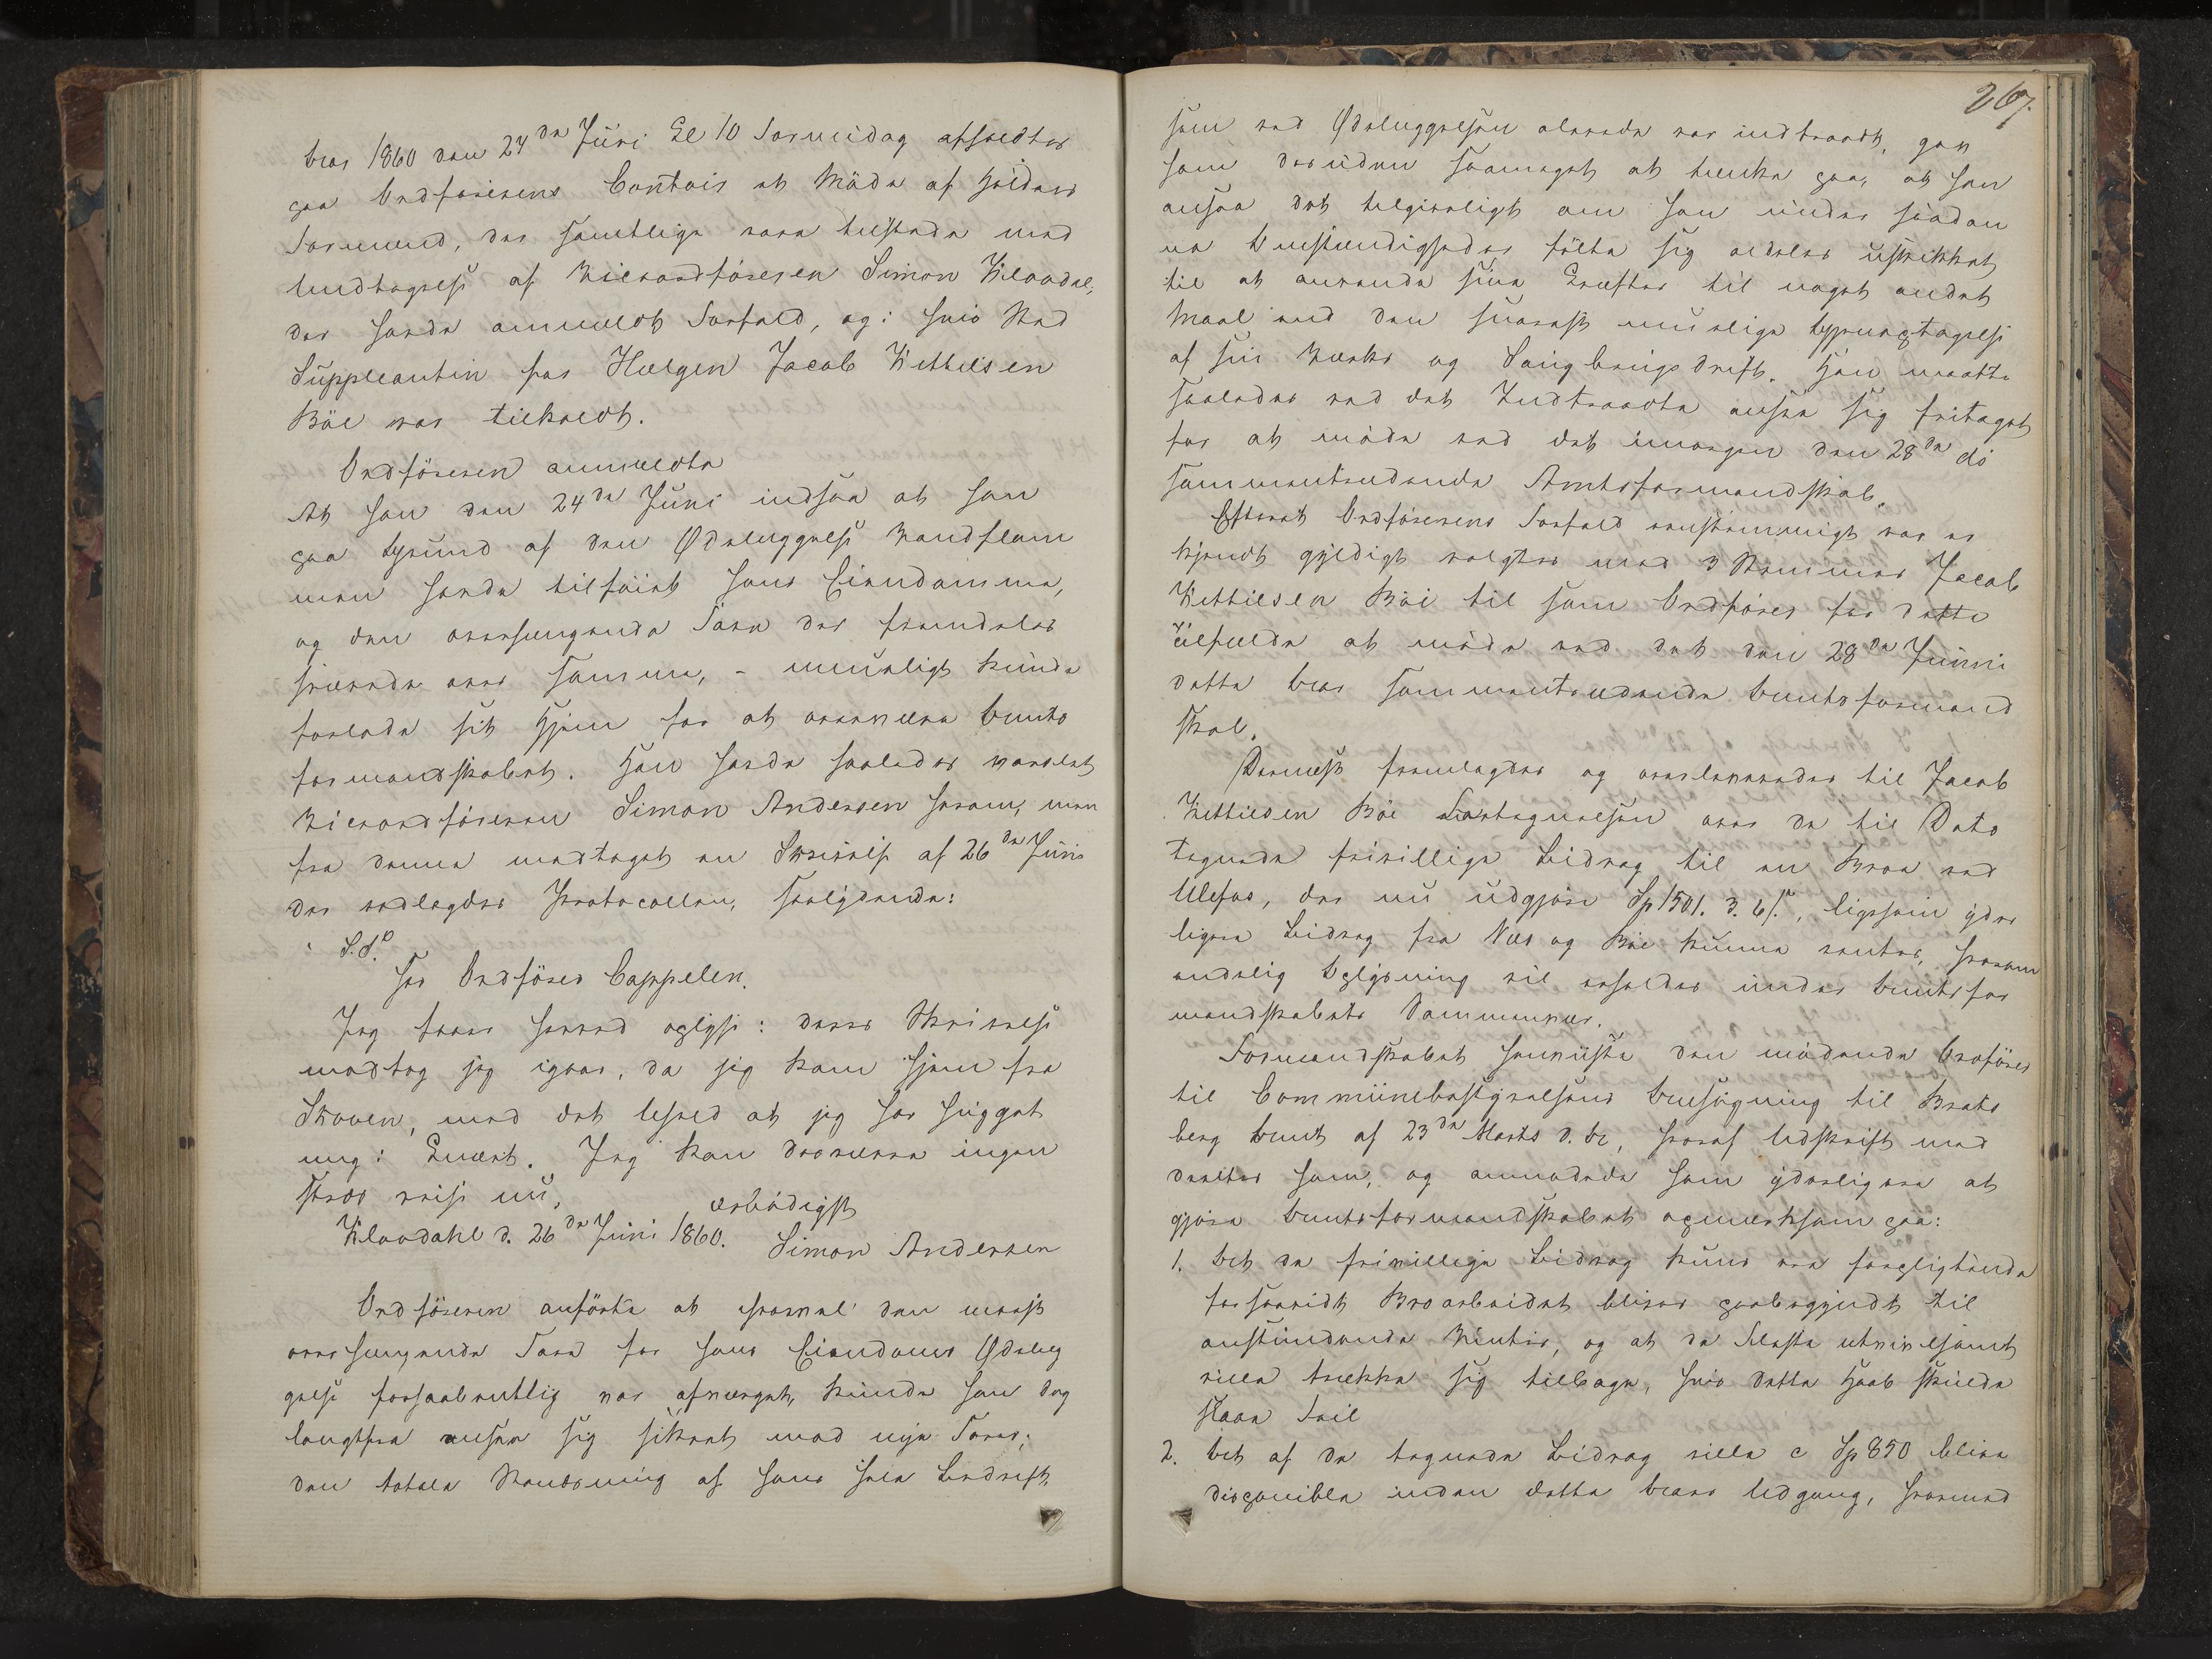 Aar 1860 den 24de Juni Kl 10 Formidag afholdtes
paa Ordførerens Contoir et Møde af Holdens
Formænd, der samtlige vare tilstede med
Undtagelse af Viceordføreren Simon Klovdal,
der havde anmeldt Forfald, og i hvis Sted
Suppleanten for Hælgen Jacob Kettilsen
Bøe var tilkaldt.
Ordføreren anmeldte
At han den 24de Juni indsaa at han
paa Grund af den Ødelæggelse Vandflom
men havde tilføiet hans Eiendomme,
og den overhængende Fare der fremdeles
svævede over samme, - umuligt kunde
forlade sit Hjem for at overvære Amts
formandskabet. Han havde saaledes varslet
Viceordføreren Simon Andersen herom, men
fra denne modtaget en Skrivelse af 26de Juni
der vedlagdes Protocollen, saalydende:
S. T.
Hr Ordfører Cappelen.
Jeg faaer herved oplyse: deres Skrivelse
modtog jeg igaar, da jeg kom hjem fra
Skoven, med det uheld at jeg har hugget
mig i Knæet. Jeg kan desværre ingen
steds reise nu,
ærbødigst
Klovdahl d. 26de Juni 1860. Simon Andersen
Ordføreren anførte at hvorvel den mest
overhængende Fare for hans Eiendoms Ødelæg
gelse forhaabentlig var afværget, kunde han dog
langtfra ansee sig sikret mod nye Farer;
den totale Standsning af hans hele Bedrift,
267.
som ved Ødelæggelsen allerede var indtraadt, gav
ham desuden saameget at tænke paa, at han
ansaa det tilgiveligt om han under saadan
ne Omstændigheder følte sig aldeles uskikket
til at anvende sine Kræfter til noget andet
Maal end den snarest mulige Gjenoptagelse
af sin Værks og Saugbrugsdrift. Han maatte
saaledes ved det Indtraadte ansee sig fritaget
for at møde ved det imorgen den 28de ds
sammentrædende Amtsformandskab.
Efterat Ordførerens Forfald enstemmigt var er
kjendt gyldigt valgtes med 3 Stemmer Jacob
Kettilsen Bøe til som Ordfører for dette
Tilfælde at møde ved det den 28de Junni
dette Aar sammentrædende Amtsformand
skab.
Dernæst fremlagdes og overleveredes til Jacob
Kettilsen Bøe Fortegnelsen over de til Dato
tegnede frivillige Bidrag til en Broe ved
Ulefos, der nu udgjøre Sp 1501. 3. 6 s., ligesom yder
ligere Bidrag fra Næs og Bøe kunne ventes, hvorom
endelig Oplysning vil erholdes under Amtsfor
mandskabets Sammenvær.
Formandskabet henviiste den mødende Ordfører
til Communebestyrelsens Ansøgning til Brats
berg Amt af 23de Marts d. A., hvoraf Udskrift med
deeltes ham, og anmodede ham yderligere at
gjøre Amtsformandskabet opmærksom paa:
1. At de frivillige Bidrag kuns ere forpligtende
forsaavidt Broarbeidet bliver paabegyndt til
anstundende Vinter, og at de Fleste utvivlsomt
ville trække sig tilbage, hvis dette Haab skulde
slaae Feil
2. At af de tegnede Bidrag ville c Sp 850 blive
disponible inden dette Aars Udgang, hvormed